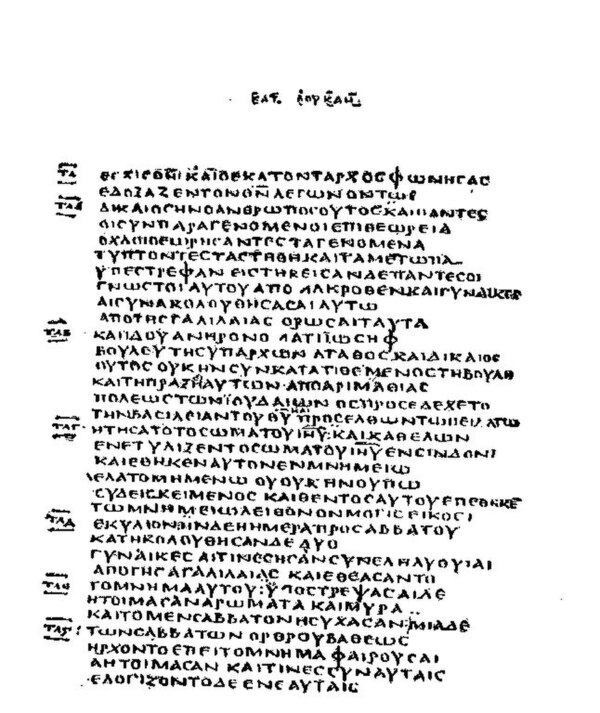 ΚΑΤ. ΛΟΥΚΑΝ
ΚΑΙΟΕΚΑΤΟΝΤΑΡΧΟΣΦΩΝΗΣΑΣ
ΕΔΟΞΑΖΕΝΤΟΝΘ̅Ν̅ΛΕΓΩΝΟΝΤΩΣ
ΔΙΚΑΙΟΣΗΝΟΑΝΘΡΩΠΟΣΟΥΤΟΣΚΑΙΠΑΝΤΕΣ
ΟΙΣΥΝΠΑΡΑΓΕΝΟΜΕΝΟΙΕΠΙΘΕΩΡΕΙΑ
ΟΧΛΟΙΘΕΩΡΗΣΑΝΤΕΣΤΑΓΕΝΟΜΕΝΑ
ΤΥΠΤΟΝΤΕΣΤΑΣΤΗΘΗΚΑΙΤΑΜΕΤΩΠΑ
ΥΠΕΣΤΡΕΦΑΝ ΕΙΣΤΗΚΕΙΣΑΝΔΕΠΑΝΤΕΣΟΙ
ΓΝΩΣΤΟΙΑΥΤΟΥΑΠΟΜΑΚΡΟΘΕΝΚΑΙΓΥΝΑΙΚΕΣ
ΑΙΣΥΝΑΚΟΛΟΥΘΗΣΑΣΑΙΑΥΤΩ
ΑΠΟΤΗΣΓΑΛΙΛΑΙΑΣ ΟΡΩΣΑΙΤΑΥΤΑ
ΚΑΙΙΔΟΥΑΝΗΡΟΝΟΜΑΤΙΪΩΣΗΦ
ΒΟΥΛΕΥΤΗΣΥΠΑΡΧΩΝΑΓΑΘΟΣΚΑΙΔΙΚΑΙΟΣ
ΟΥΤΟΣΟΥΚΗΝΣΥΝΚΑΤΑΤΙΘΕΜΕΝΟΣΤΗΒΟΥΛΗ
ΚΑΙΤΗΠΡΑΞΕΙΑΥΤΩΝ·ΑΠΟΑΡΙΜΑΘΙΑΣ
ΠΟΛΕΩΣΤΩΝΪΟΥΔΑΙΩΝ ΟΣΠΡΟΣΕΔΕΧΕΤΟ
ΤΗΝΒΑΣΙΛΕΙΑΝΤΟΥΘ̅Υ̅ΠΡΟΣΕΛΘΩΝΤΩΠΕΙΛΑΤΩ
ΗΤΗΣΑΤΟΤΟΣΩΜΑΤΟΥΙ̅Η̅Υ̅·ΚΑΙΚΑΘΕΛΩΝ
ΕΝΕΤΥΛΙΞΕΝΤΟΣΩΜΑΤΟΥΙ̅Η̅Υ̅ΕΝΣΙΝΔΟΝΙ
ΚΑΙΕΘΗΚΕΝΑΥΤΟΝΕΝΜΝΗΜΕΙΩ
ΛΕΛΑΤΟΜΗΜΕΝΩ ΟΥΟΥΚΗΝΟΥΠΩ
ΟΥΔΕΙΣΚΕΙΜΕΝΟΣ ΚΑΙΘΕΝΤΟΣΑΥΤΟΥΕΠΕΘΗΚΕ
ΤΩΜΝΗΜΕΙΩΛΕΙΘΟΝΟΝΜΟΓΙΣΕΙΚΟΣΙ
ΕΚΥΛΙΟΝ·ΗΝΔΕΗΗΜΕΡΑΠΡΟΣΑΒΒΑΤΟΥ
ΚΑΤΗΚΟΛΟΥΘΗΣΑΝΔΕΔΥΟ
ΓΥΝΑΙΚΕΣΑΙΤΙΝΕΣΗΣΑΝΣΥΝΕΛΗΛΥΘΥΙΑΙ
ΑΠΟΤΗΣΓΑΛΙΛΑΙΑΣ ΚΑΙΕΘΕΑΣΑΝΤΟ
ΤΟΜΝΗΜΑΑΥΤΟΥ:ΥΠΟΣΤΡΕΨΑΣΑΙΔΕ
ΗΤΟΙΜΑΣΑΝΑΡΩΜΑΤΑ ΚΑΙΜΥΡΑ
ΚΑΙΤΟΜΕΝΣΑΒΒΑΤΟΝΗΣΥΧΑΣΑΝ·ΜΙΑΔΕ
ΤΩΝΣΑΒΒΑΤΩΝ ΟΡΘΡΟΥΒΑΘΕΩΣ
ΗΡΧΟΝΤΟΕΠΕΙΤΟΜΝΗΜΑΦΑΙΡΟΥΣΑΙ
ΑΗΤΟΙΜΑΣΑΝ ΚΑΙΤΙΝΕΣΣΥΝΑΥΤΑΙΣ
ΕΛΟΓΙΖΟΝΤΟΔΕ ΕΝΕΑΥΤΑΙΣ